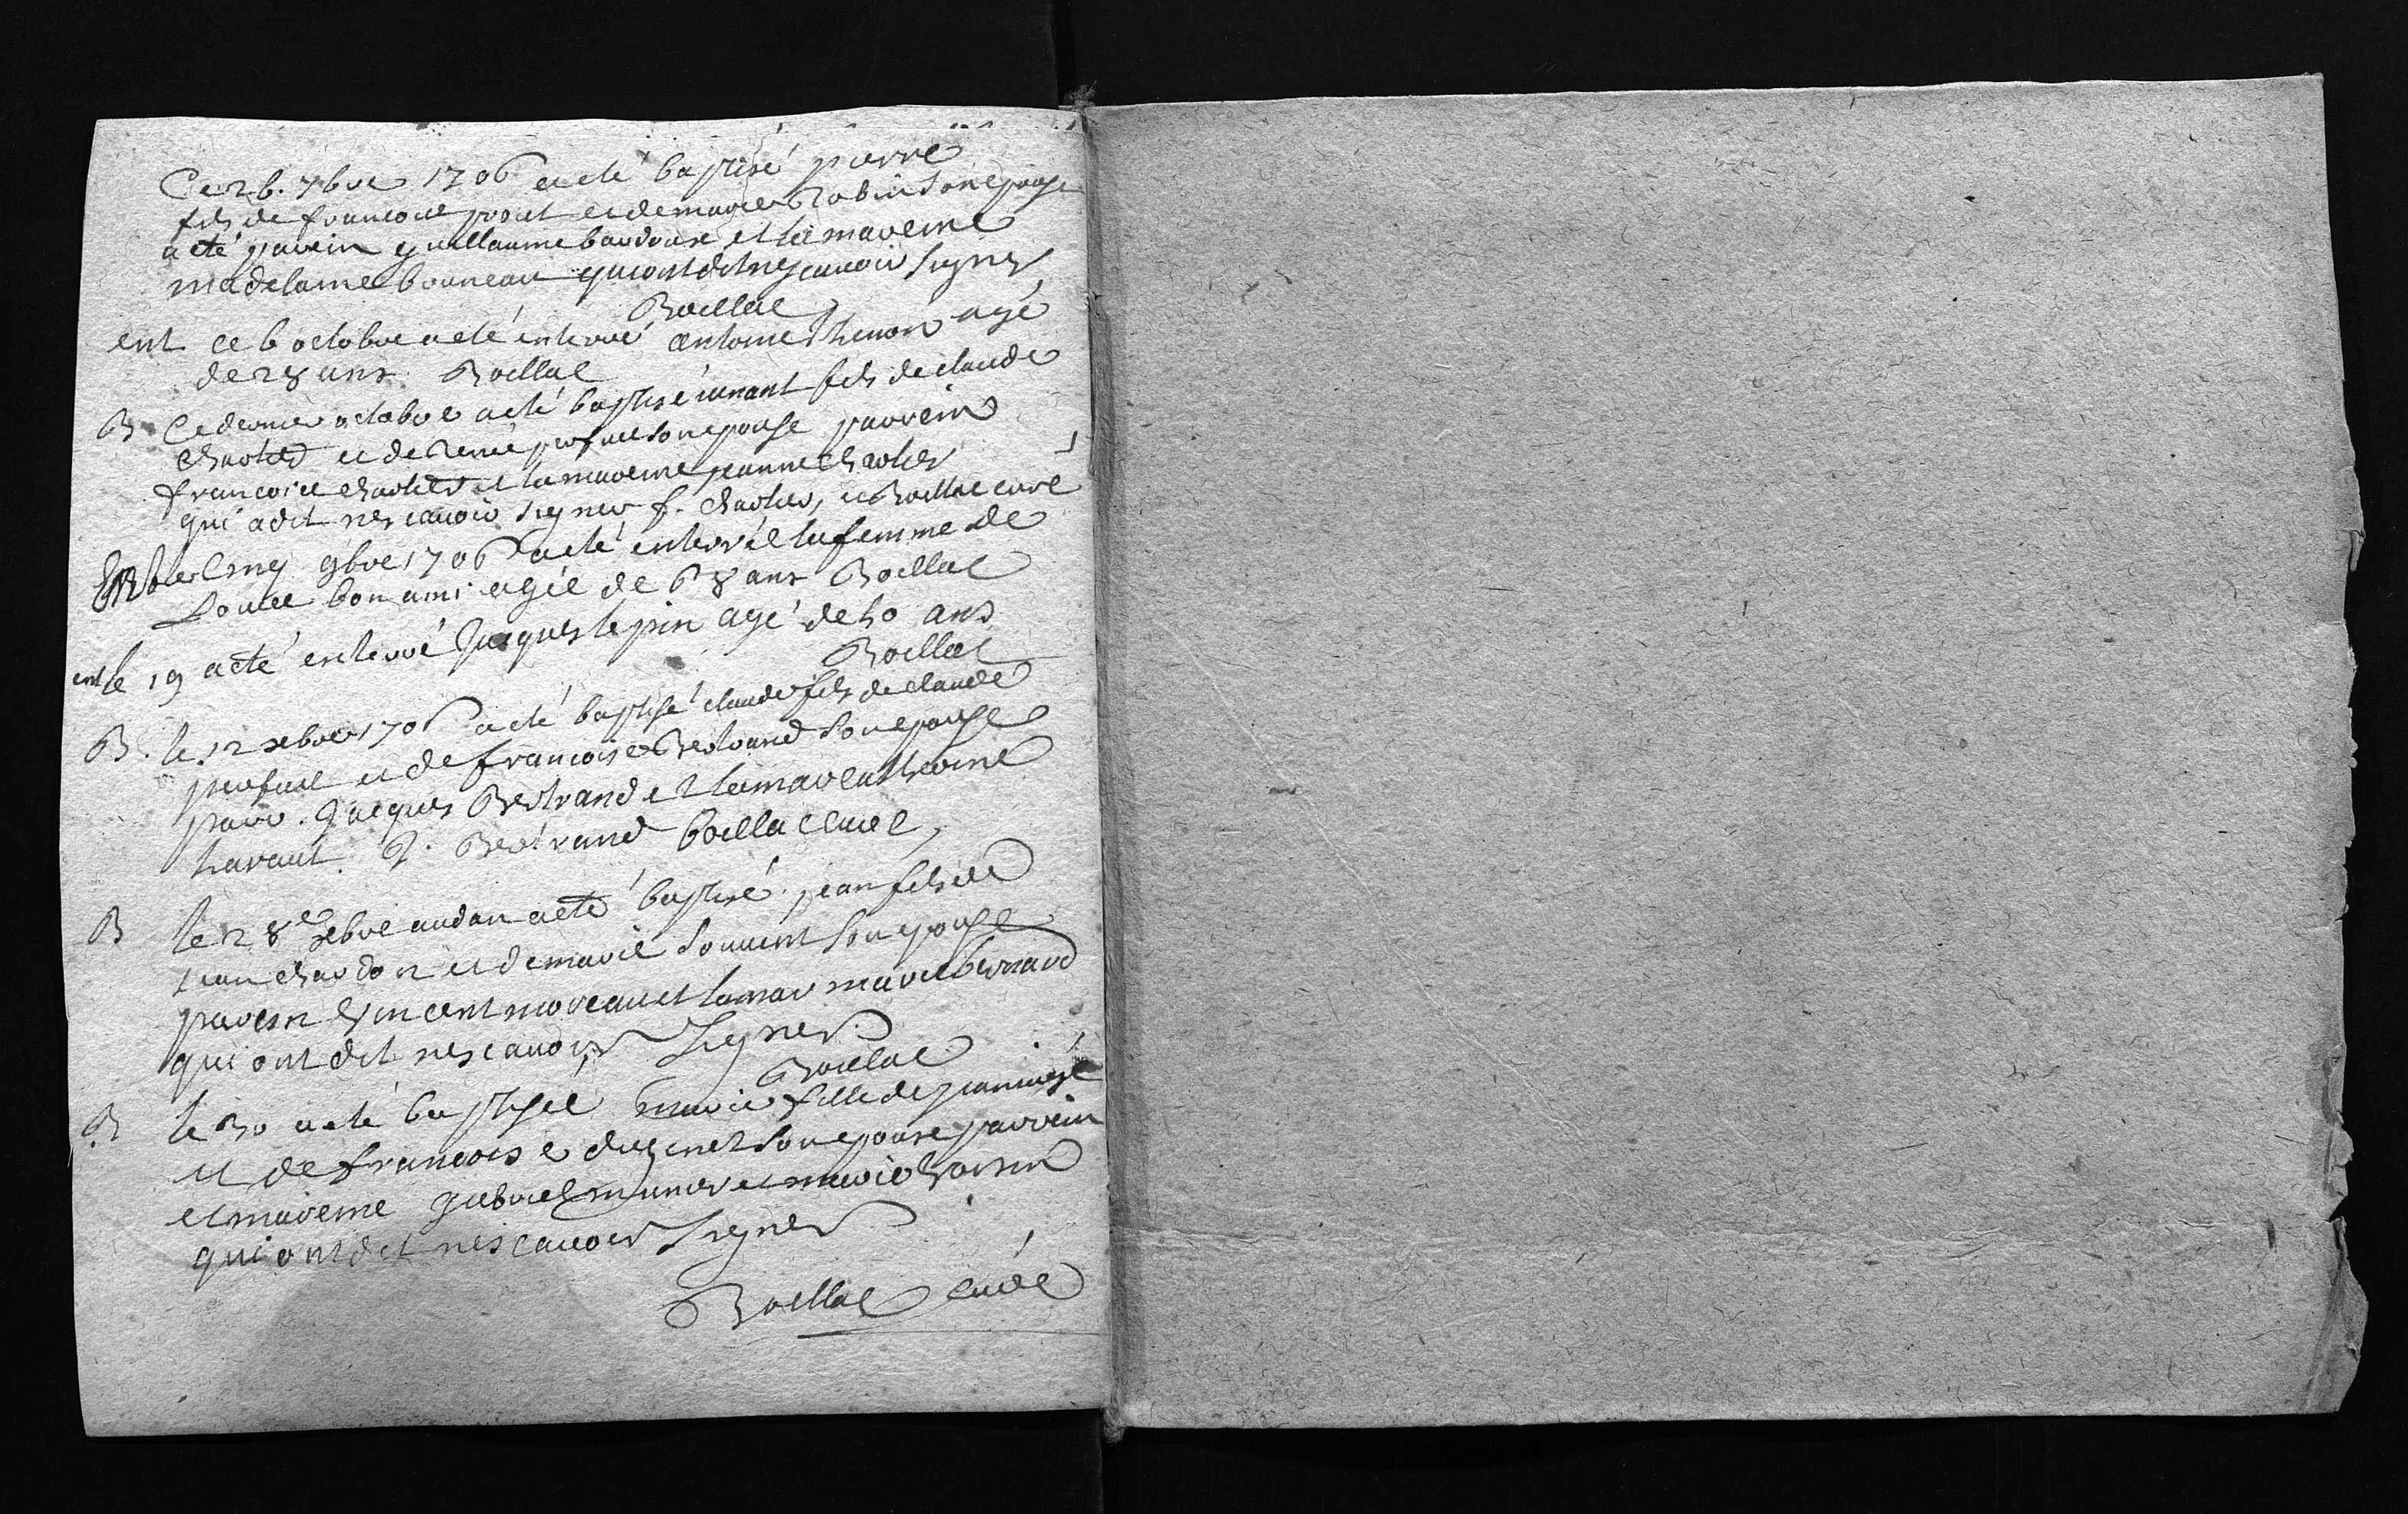 Ce 26. 7bre 1706 a eté baptisé pierre
fils de francois prout et de marie Robin son epouse
a eté parein guillaume baudouse et la mareine
madelaine bouneau qui ont dit ne scauoir signer
Boellac
ent ce 6 octobre a eté enterré antoine thenon agé
de 28 ans. Boellac
B Ce dernier octobre a eté baptisé fils de claude
chartier et de Renée perfuel son epouse parrein
francois chartier et la mareine jeanne chartier
qui a dit ne scauoir signer f. chartier, et Boellac curé
Enter Cinq 9bre 1706 a eté enterrée la femme de
Louis bonami agée de 68 ans Boellac
ent le 19 a eté enterré Jacques lepin agé de 50 ans
Boellac
B. le 12 xebre 1706 a eté baptisé claude fils de claude
perfuel et de francoise Bertrand son epouse
parr. Jacques Bertrand et la mar catherine
havaut. J. Bertrand Boellac curé,
B le 28e xebre audan a eté baptisé jean fils de
jean chardon et de marie son epouse
parein Vincent moreau et la mar marie bernard
qui ont dit ne scauoir signer.
Boellac
B le 30 a eté baptisée marie fille de jean
et de francoise son epouse parrein
et mareine gabriel munier et marie Voisin
qui ont dit ne scauoir signer
Boellac curé